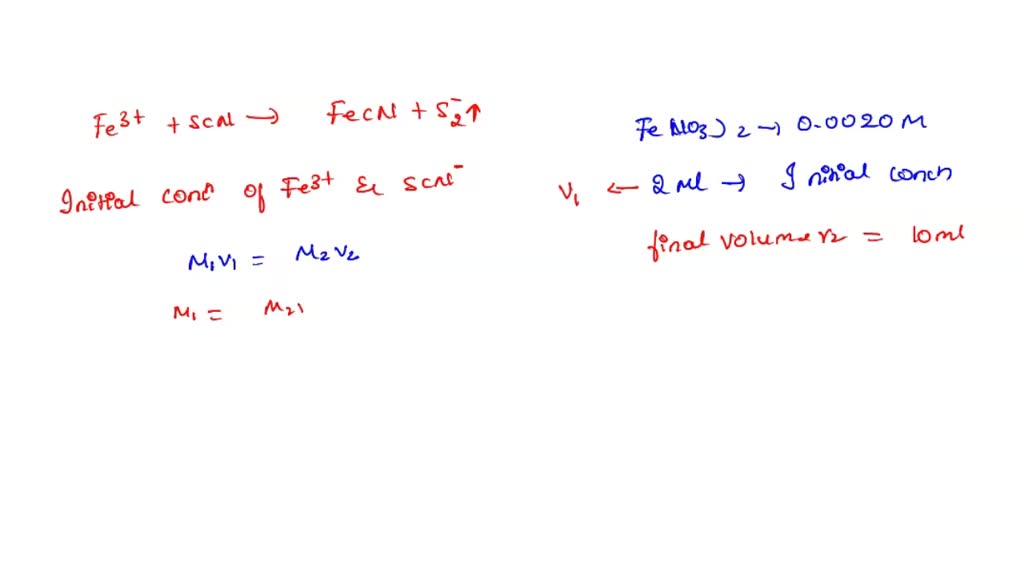 Fe³⁺ + SCN → FeCN + S₂⁻↑
Initial conc of Fe³⁺ & SCN⁻
M₁V₁ = M₂V₂
M₁ = M₂
Fe(NO₃)₂ → 0.0020 M
V₁ ← 2 ml → Initial concn
final volume V₂ = 10 ml